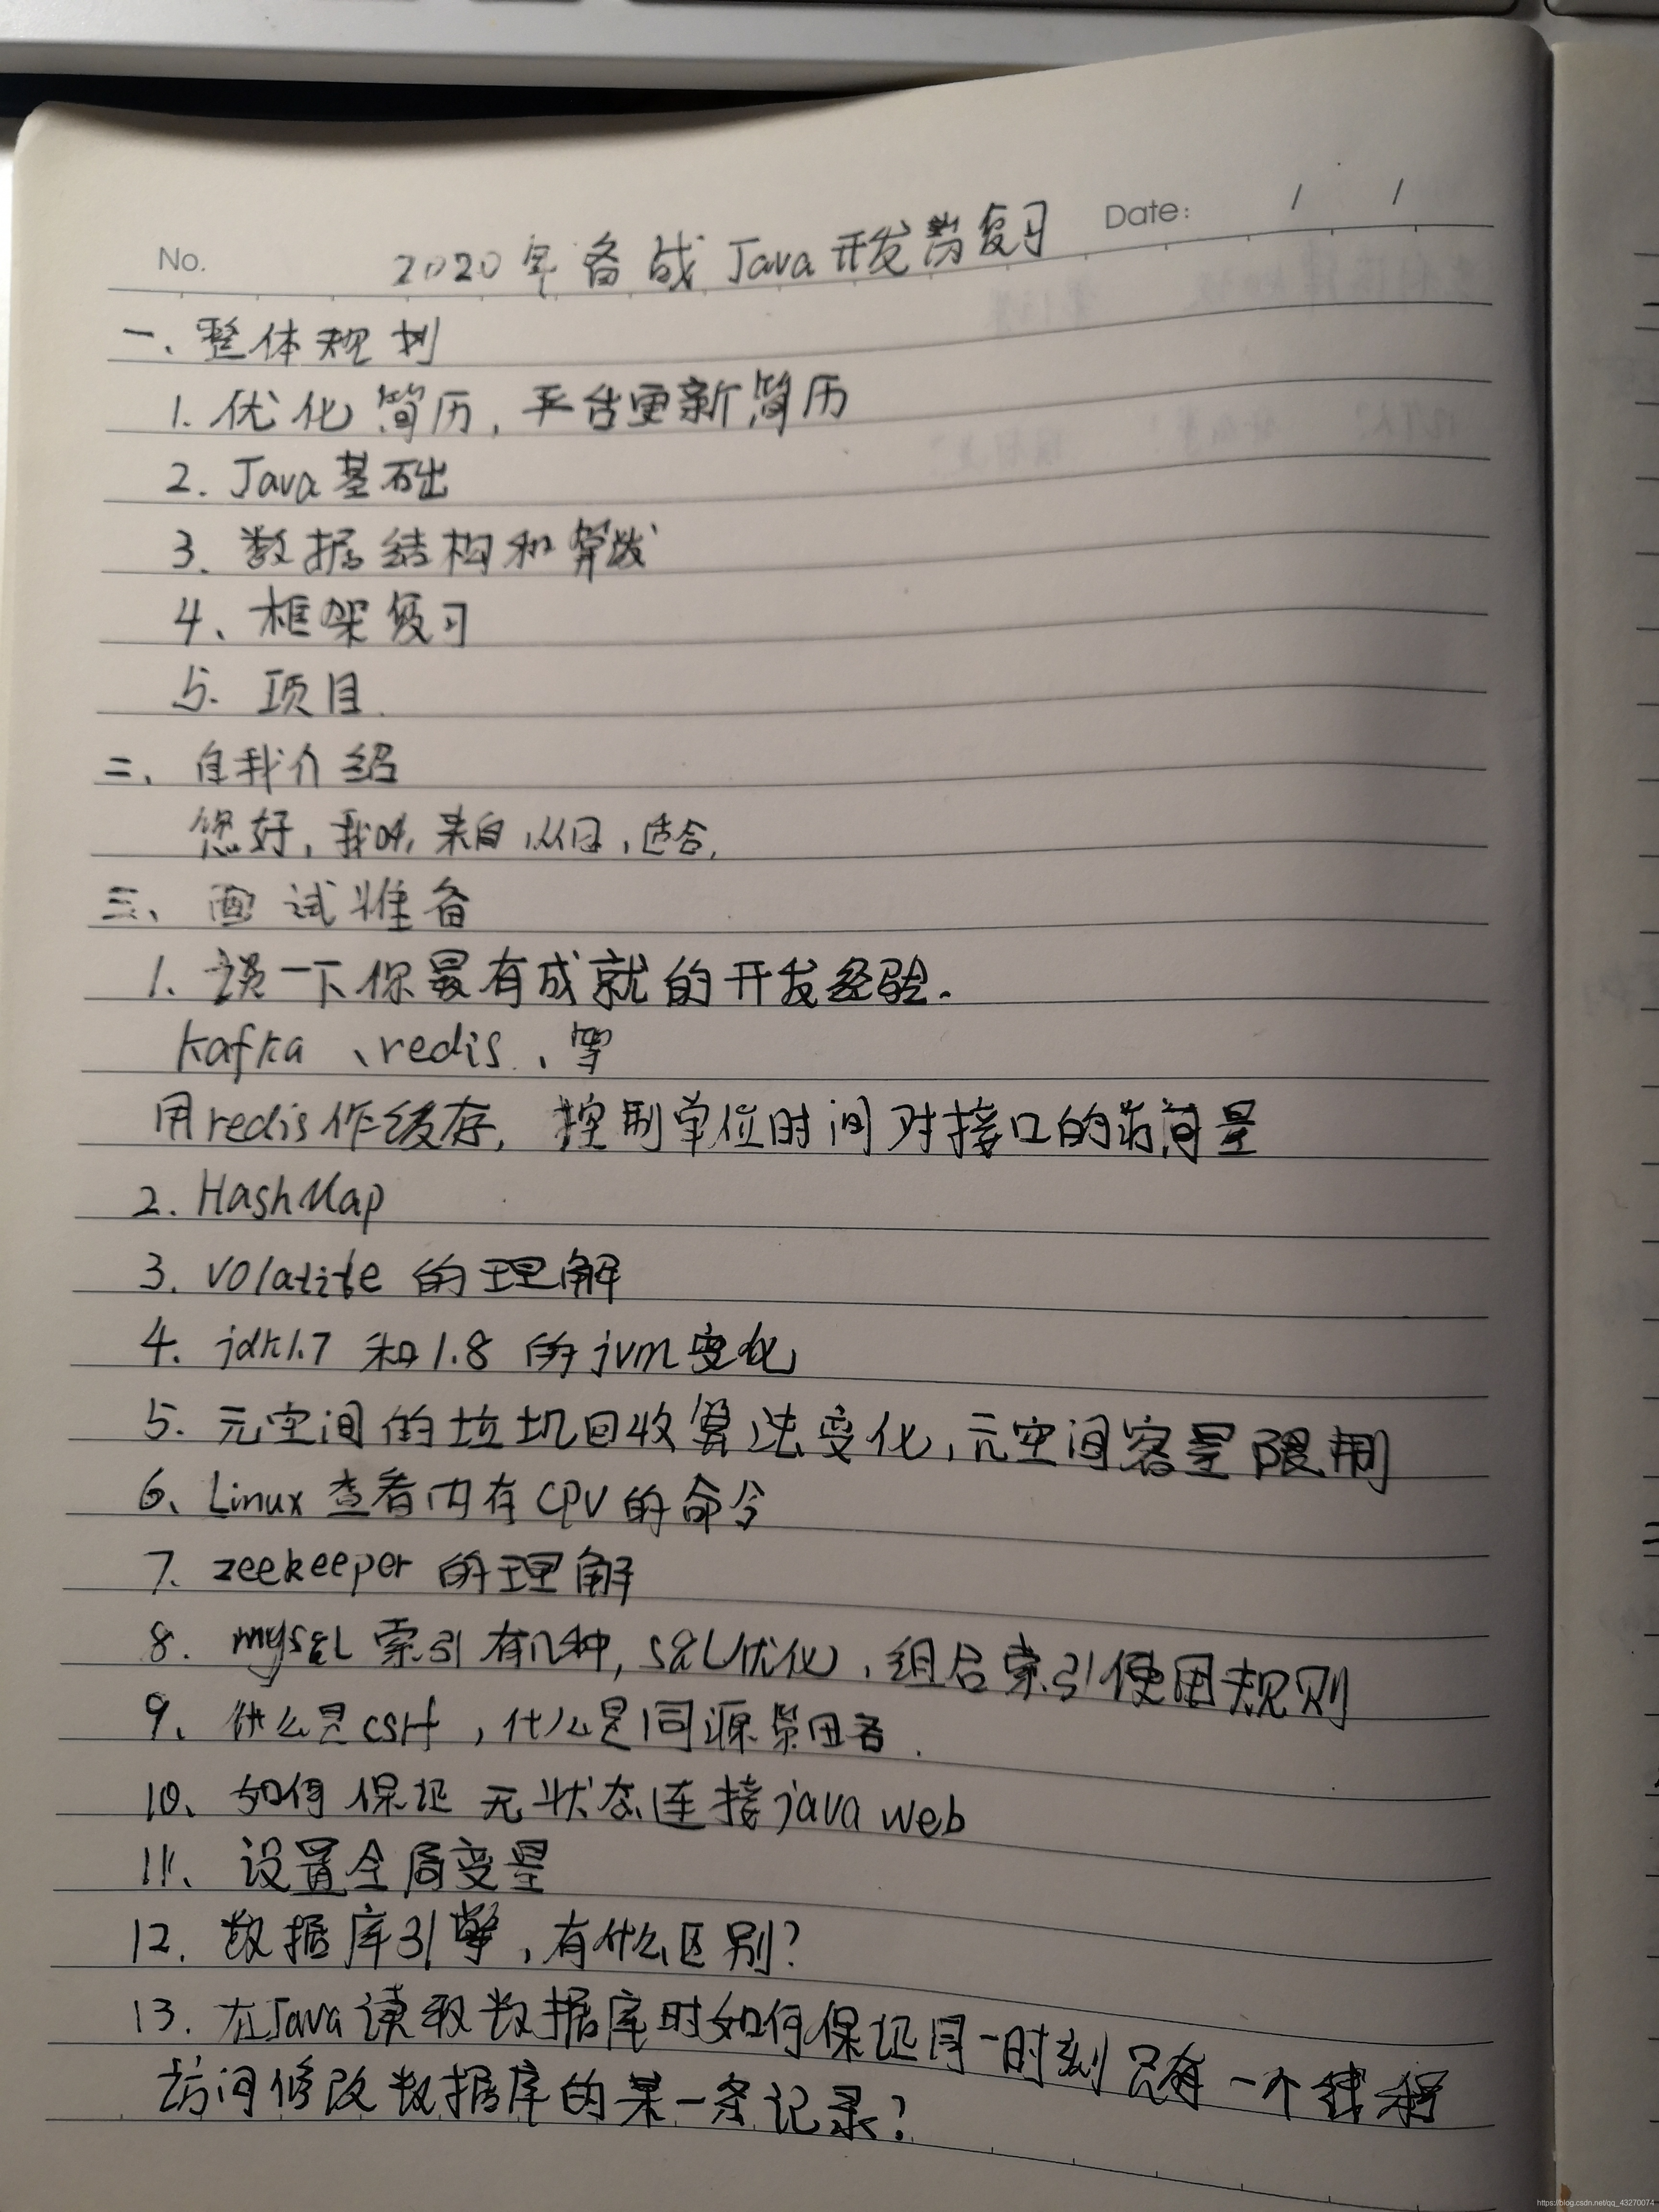 No.
Date: / /
2020年备战Java开发岗复习
一、整体规划
1. 优化简历，平台更新简历
2. Java基础
3. 数据结构和算法
4、框架复习
5. 项目
二、自我介绍
您好，我叫，来自，从日，适合，
三、面试准备
1、谈一下你最有成就的开发经验.
kafka、redis、等
用redis作缓存，控制单位时间对接口的访问量
2. HashMap
3. volatite 的理解
4. jdk1.7 和1.8 的jvm变化
5. 元空间的垃圾回收算法变化，元空间容量限制
6、Linux 查看内存CPU的命令
7. zeekeeper 的理解
8. mysql 索引有几种，SQL优化，组合索引使用规则
9、什么是csrf，什么是同源策略.
10、如何保证无状态连接java web
11、设置全局变量
12. 数据库引擎，有什么区别？
13. 在Java读取数据库时如何保证同一时刻只有一个线程
访问修改数据库的某一条记录？
https://blog.csdn.net/qq_43270074